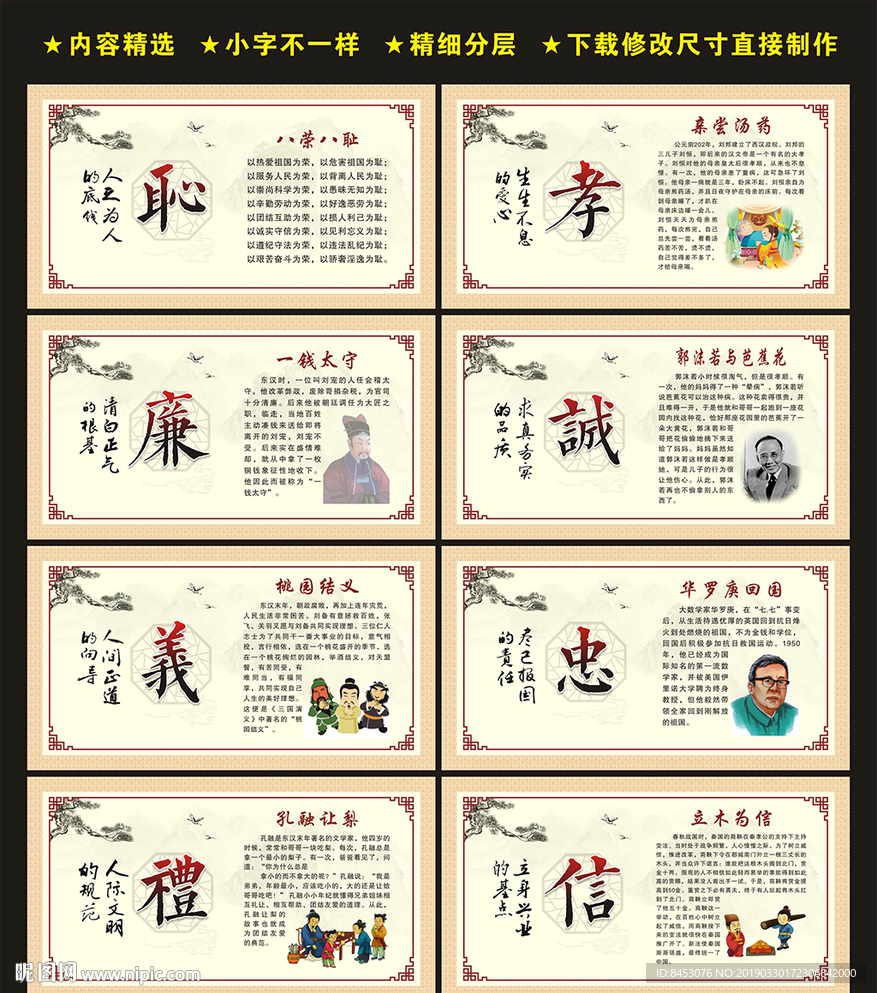 ★内容精选 ★小字不一样 ★精细分层 ★下载修改尺寸直接制作
人之为人
的底线
恥
八荣八耻
以热爱祖国为荣，以危害祖国为耻；
以服务人民为荣，以背离人民为耻；
以崇尚科学为荣，以愚昧无知为耻；
以辛勤劳动为荣，以好逸恶劳为耻；
以团结互助为荣，以损人利己为耻；
以诚实守信为荣，以见利忘义为耻；
以遵纪守法为荣，以违法乱纪为耻；
以艰苦奋斗为荣，以骄奢淫逸为耻。
生生不息
的爱心
孝
亲尝汤药
公元前202年，刘邦建立了西汉政权。刘邦的
三儿子刘恒，即后来的汉文帝是一个有名的大孝
子。刘恒对他的母亲皇太后很孝顺，从来也不怠
慢。有一次，他的母亲患了重病，这可急坏了刘
恒。他母亲一病就是三年，卧床不起。刘恒亲自为
母亲煎药汤，并且日夜守护在母亲的床前。每次看
到母亲睡了，才趴在
母亲床边睡一会儿。
刘恒天天为母亲煎
药，每次煎完，自己
总先尝一尝，看看汤
药苦不苦，烫不烫，
自己觉得差不多了，
才给母亲喝。
清白正气
的根基
廉
一钱太守
东汉时，一位叫刘宠的人任会稽太
守，他改革弊政，废除苛捐杂税，为官司
十分清廉。后来他被朝廷调任为大匠之
职，临走，当地百姓
主动凑钱来送给即将
离开的刘宠，刘宠不
受。后来实在盛情难
却，就从中拿了一枚
铜钱象征性地收下。
他因此而被称为“一
钱太守”。
求真务实
的品质
誠
郭沫若与芭蕉花
郭沫若小时候很淘气，但是很孝顺。有
一次，他的妈妈得了一种“晕病”，郭沫若听
说芭蕉花可以治这种病。这种花卖得很贵，并
且难得一开，于是他就和哥哥一起跑到一座花
园内找这种花，恰好那座花园里的芭蕉开了一
朵大黄花，郭沫若和哥
哥把花偷偷地摘下来送
给了妈妈。妈妈虽然知
道郭沫若这样做是孝顺
她，可是儿子的行为很
让他伤心。从此，郭沫
若再也不偷拿别人的东
西了。
人间正道
的向导
義
桃园结义
东汉末年，朝政腐败，再加上连年灾荒，
人民生活非常困苦。刘备有意拯救百姓，张
飞、关羽又愿与刘备共同实现理想。三位仁人
志士为了共同干一番大事业的目标，意气相
投，言行相依，选在一个桃花盛开的季节、选
在一个桃花绚烂的园林，举酒结义，对天盟
誓，有苦同受，有
难同当，有福同
享，共同实现自己
人生的美好理想。
这便是《三国演
义》中著名的“桃
园结义”。
尽己报国
的责任
忠
华罗庚回国
大数学家华罗庚，在“七.七”事变
后，从生活待遇优厚的英国回到抗日烽
火到处燃烧的祖国，不为金钱和学位，
回国后积极参加抗日救国运动。1950
年，他已经成为国
际知名的第一流数
学家，并被美国伊
里诺大学聘为终身
教授，但他毅然带
领全家回到刚解放
的祖国。
人际文明
的规范
禮
孔融让梨
孔融是东汉末年著名的文学家，他四岁的
时候，常常和哥哥一块吃梨。每次，孔融总是
拿一个最小的梨子。有一次，爸爸看见了，问
道：“你为什么总是
拿小的而不拿大的呢？”孔融说：“我是
弟弟，年龄最小，应该吃小的，大的还是让给
哥哥吃吧！”孔融小小年纪就懂得兄弟姐妹相
互礼让、相互帮助、团结友爱的道理。从此，
孔融让梨的
故事也就成
为团结友爱
的典范。
立身兴业
的基点
信
立木为信
春秋战国时，秦国的商鞅在秦孝公的支持下主持
变法。当时处于战争频繁、人心惶惶之际，为了树立威
信，推进改革，商鞅下令在都城南门外立一根三丈长的
木头，并当众许下诺言：谁能把这根木头搬到北门，赏
金十两。围观的人不相信如此轻而易举的事能得到如此
高的赏赐，结果没人肯出手一试。于是，商鞅将赏金提
高到50金。重赏之下必有勇夫，终于有人站起将木头扛
到了北门。商鞅立即赏
了他五十金。商鞅这一
举动，在百姓心中树立
起了威信，而商鞅接下
来的变法就很快在秦国
推广开了。新法使秦国
渐渐强盛，最终统一了
中国。
昵图网 www.nipic.com
ID:8453076 NO:20190330172308842000